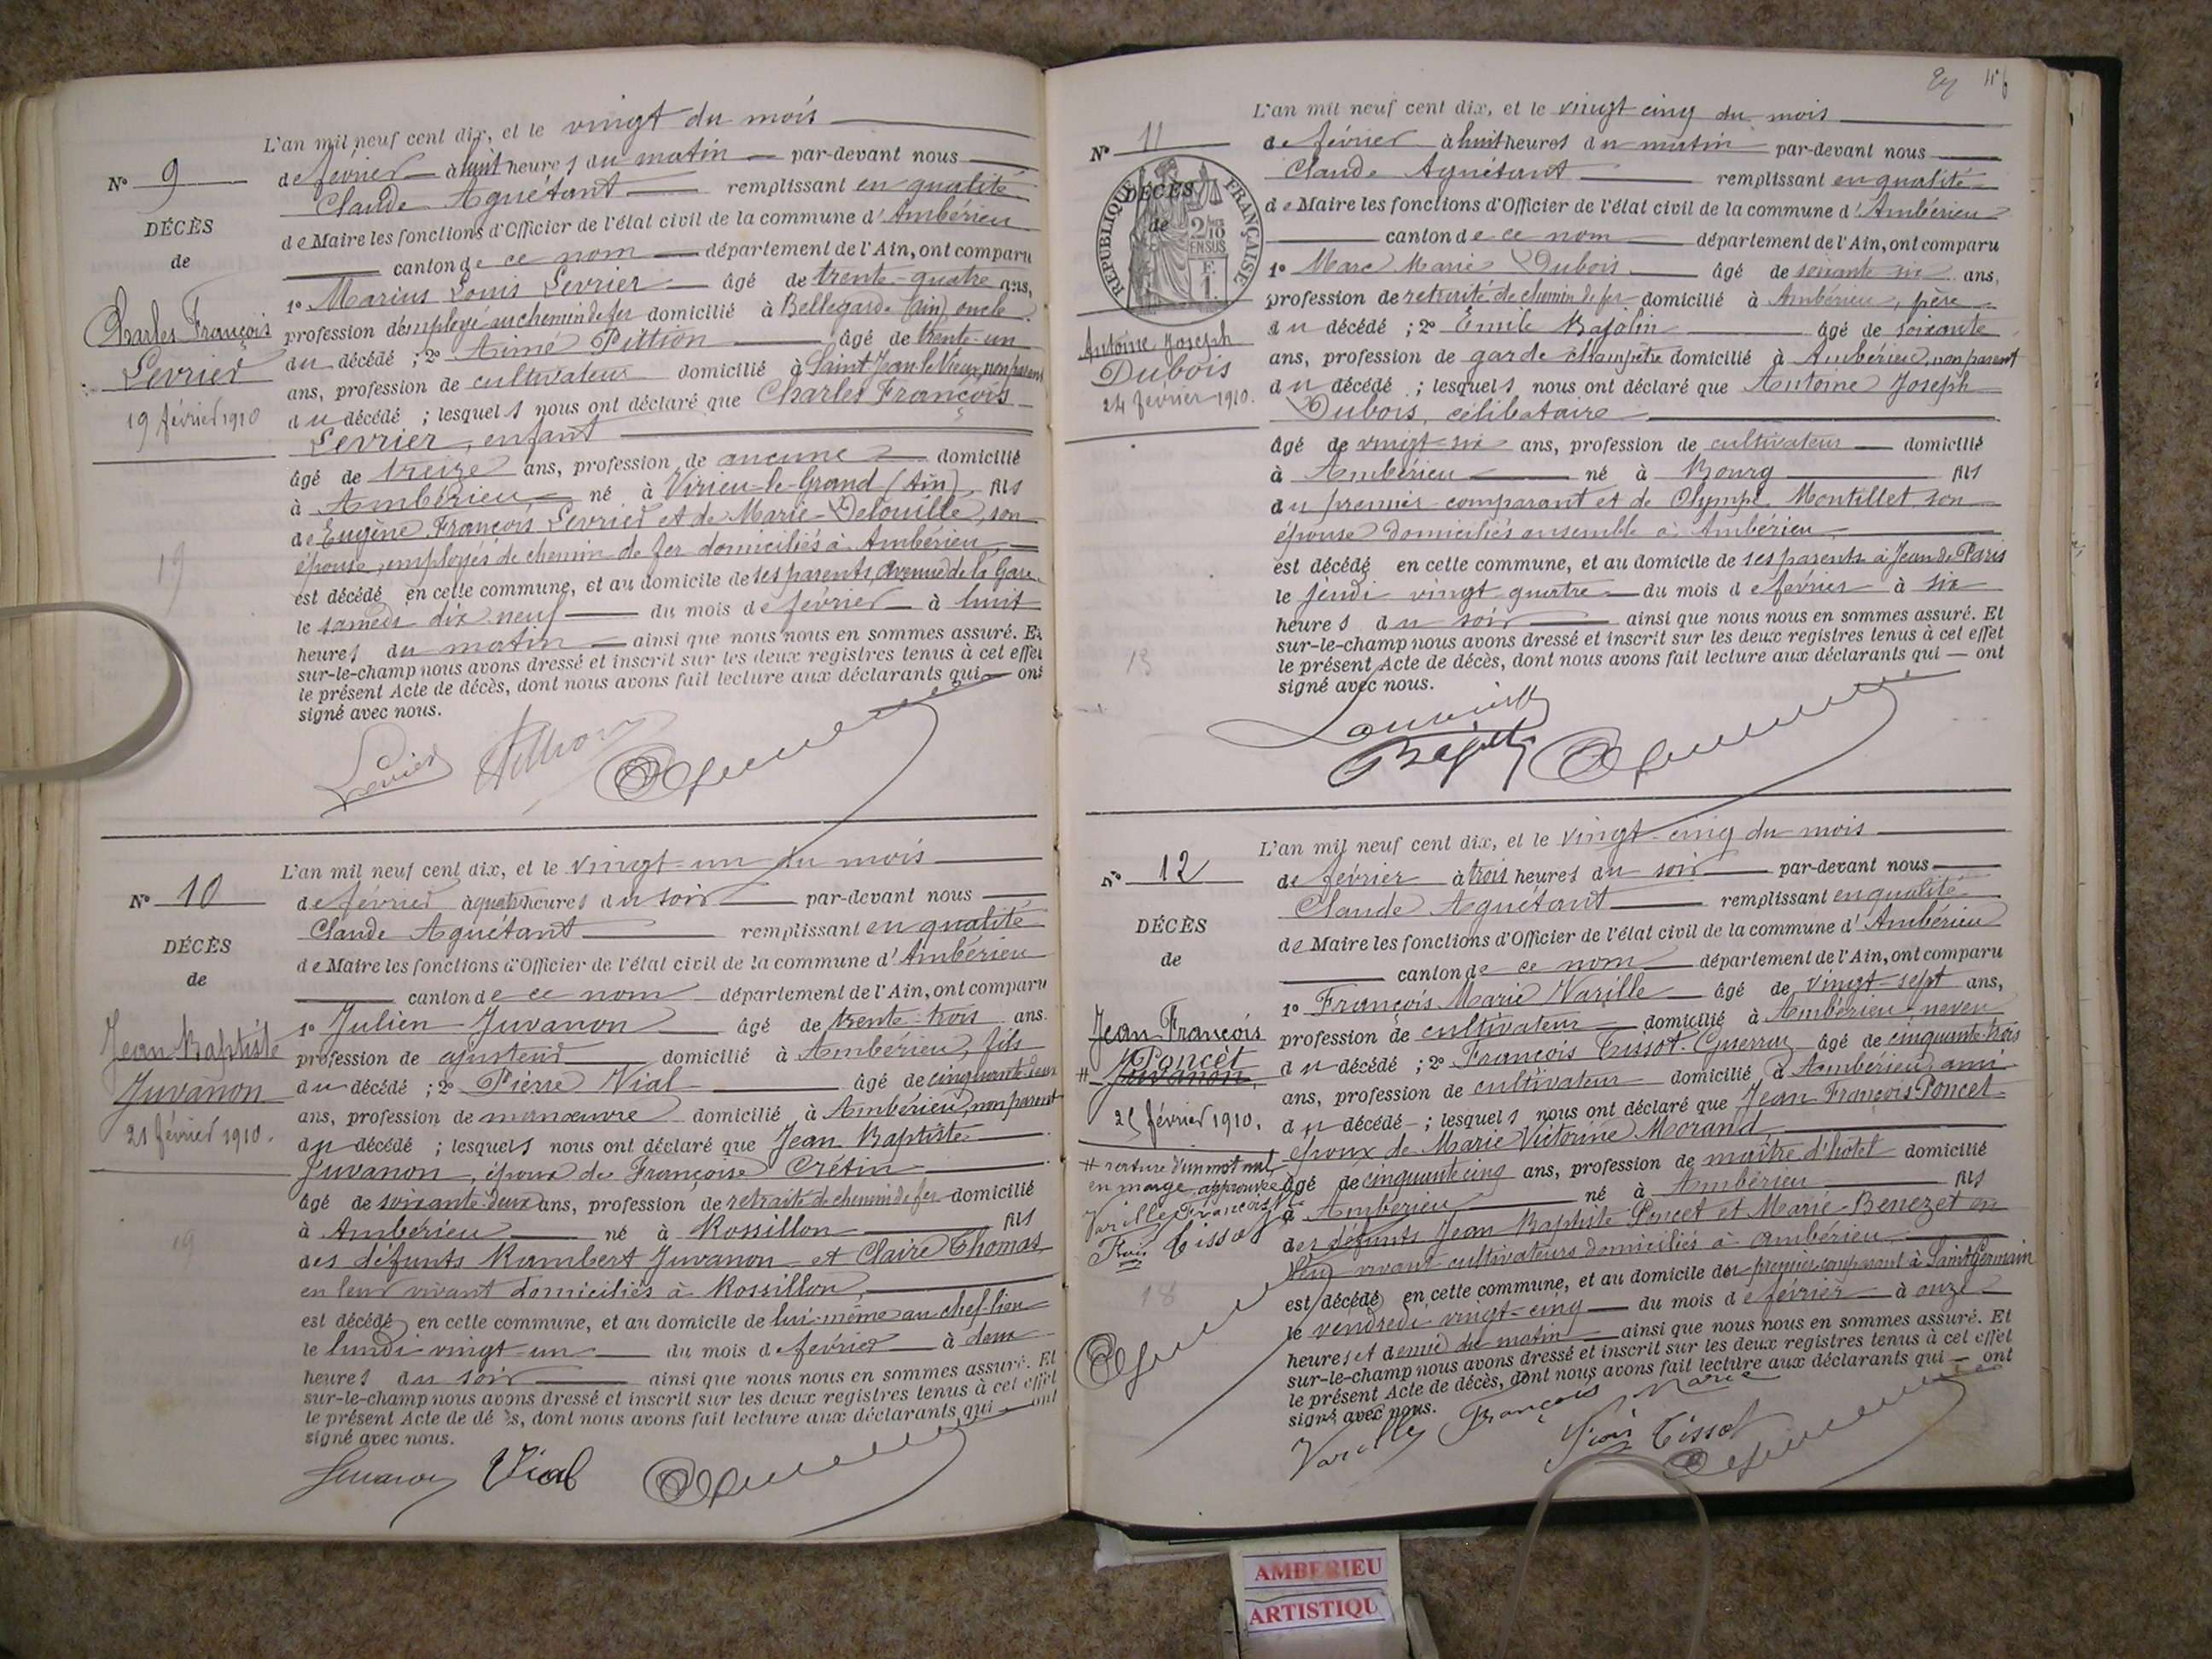 L'an mil neuf cent dix, et le vingt du mois
N° 9
de février à huit heures du matin par-devant nous
Claude Aguétant remplissant en qualité
DÉCÈS
de Maire les fonctions d'Officier de l'état civil de la commune d'Ambérieu
de
canton de ce nom département de l'Ain, ont comparu
1° Marius Louis Levrier âgé de trente-quatre ans,
Charles François
profession d'employé au chemin de fer domicilié à Bellegarde (Ain) oncle
Levrier
du décédé ; 2° Aimé Pittion âgé de trente-un
ans, profession de cultivateur domicilié à Saint Jean le Vieux, non parent
19 février 1910
du décédé ; lesquels nous ont déclaré que Charles François
Levrier, enfant
âgé de treize ans, profession de aucune domicilié
à Ambérieu né à Virieu-le-Grand (Ain) fils
de Eugène François Levrier et de Marie Delouille, son
épouse, employés de chemin de fer domiciliés à Ambérieu,
19
est décédé en cette commune, et au domicile de ses parents avenue de la Gare
le samedi dix neuf du mois de février à huit
heures du matin ainsi que nous nous en sommes assuré. Et
sur-le-champ nous avons dressé et inscrit sur les deux registres tenus à cet effet
le présent Acte de décès, dont nous avons fait lecture aux déclarants qui ont
signé avec nous.
Levrier
L'an mil neuf cent dix, et le vingt-un du mois
N° 10
de février à quatre heures du soir par-devant nous
Claude Aguétant remplissant en qualité
DÉCÈS
de Maire les fonctions d'Officier de l'état civil de la commune d'Ambérieu
de
canton de ce nom département de l'Ain, ont comparu
1° Julien Juvanon âgé de trente-trois ans.
Jean Baptiste
profession de ajusteur domicilié à Ambérieu, fils
Juvanon
du décédé ; 2° Pierre Vial âgé de cinquante-deux
ans, profession de manœuvre domicilié à Ambérieu, non parent
21 février 1910.
du décédé ; lesquels nous ont déclaré que Jean Baptiste
Juvanon, époux de Françoise Crétin
âgé de soixante-deux ans, profession de retraité de chemin de fer domicilié
à Ambérieu né à Rossillon fils
19
des défunts Rambert Juvanon et Claire Thomas
en leur vivant domiciliés à Rossillon,
est décédé en cette commune, et au domicile de lui-même au chef-lieu
le lundi vingt-un du mois de février à deux
heures du soir ainsi que nous nous en sommes assuré. Et
sur-le-champ nous avons dressé et inscrit sur les deux registres tenus à cet effet
le présent Acte de dé ès, dont nous avons fait lecture aux déclarants qui ont
signé avec nous.
Juvanon Vial
L'an mil neuf cent dix, et le vingt-cinq du mois
N° 11
de février à huit heures du matin par-devant nous
Claude Aguétant remplissant en qualité
RÉPUBLIQUE FRANÇAISE
DÉCÈS
de
2/10 EN SUS
F. 1.
de Maire les fonctions d'Officier de l'état civil de la commune d'Ambérieu
canton de ce nom département de l'Ain, ont comparu
1° Marc Marie Dubois âgé de soixante six ans,
profession de retraité de chemin de fer domicilié à Ambérieu, père
du décédé ; 2° Emile Bajolin âgé de soixante
Antoine Joseph
ans, profession de garde champêtre domicilié à Ambérieu, non parent
Dubois
du décédé ; lesquels nous ont déclaré que Antoine Joseph
24 février 1910.
Dubois, célibataire
âgé de vingt-six ans, profession de cultivateur domicilié
à Ambérieu né à Bourg fils
du premier comparant et de Olympe Montillet, son
épouse domiciliés ensemble à Ambérieu
est décédé en cette commune, et au domicile de ses parents à Jean de Paris
le jeudi vingt quatre du mois de février à six
heures du soir ainsi que nous nous en sommes assuré. Et
sur-le-champ nous avons dressé et inscrit sur les deux registres tenus à cet effet
le présent Acte de décès, dont nous avons fait lecture aux déclarants qui — ont
signé avec nous.
L'an mil neuf cent dix, et le vingt-cinq du mois
N° 12
de février à trois heures du soir par-devant nous
Claude Aguétant remplissant en qualité
DÉCÈS
de Maire les fonctions d'Officier de l'état civil de la commune d'Ambérieu
de
canton de ce nom département de l'Ain, ont comparu
1° François Marie Varille âgé de vingt-sept ans,
Jean François
profession de cultivateur domicilié à Ambérieu neveu
Poncet
# Juvanon
du décédé ; 2° François Tissot-Guerraz âgé de cinquante-trois
ans, profession de cultivateur domicilié à Ambérieu, ami
25 février 1910.
du décédé ; lesquels nous ont déclaré que Jean François Poncet
époux de Marie Victorine Morand
# rature d'un mot nul
en marge approuvée
Varille François Mie
Fois Tissot
âgé de cinquante cinq ans, profession de maître d'hôtel domicilié
à Ambérieu né à Ambérieu fils
des défunts Jean Baptiste Poncet et Marie Benezet en
leur vivant cultivateurs domiciliés à Ambérieu
18
est décédé en cette commune, et au domicile du premier comparant à Saint Germain
le vendredi vingt-cinq du mois de février à onze
heures et demie du matin ainsi que nous nous en sommes assuré. Et
sur-le-champ nous avons dressé et inscrit sur les deux registres tenus à cet effet
le présent Acte de décès, dont nous avons fait lecture aux déclarants qui — ont
signé avec nous.
Varille François Marie
Fois Tissot
AMBERIEU
ARTISTIQU